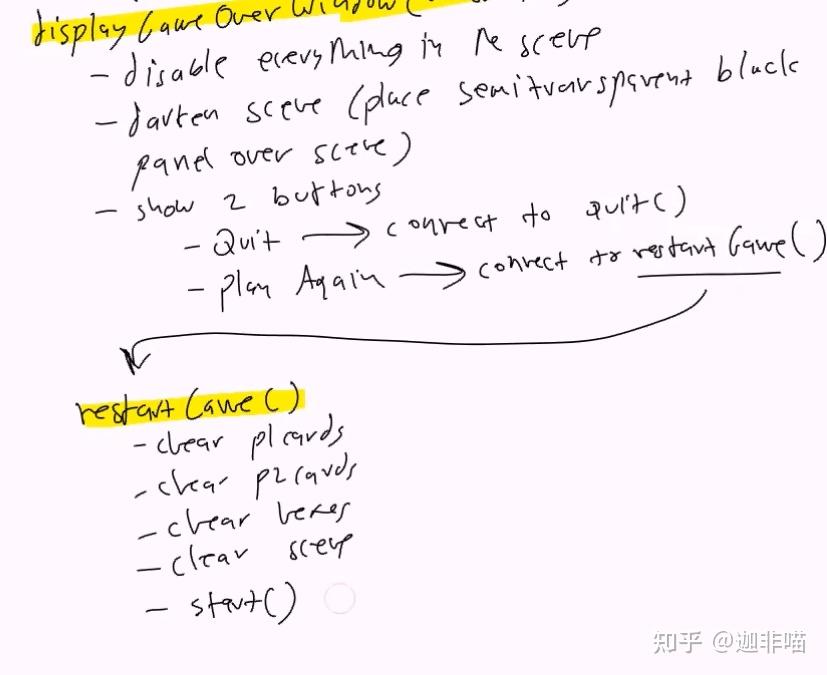 displayGameOverWindow(
- disable everything in the scene
- darken scene (place semitransparent black
panel over scene)
- show 2 buttons
- Quit → connect to quit()
- Play Again → connect to restartGame()
restartGame()
- clear p1cards
- clear p2cards
- clear hexes
- clear scene
- start()
知乎 @迦非喵